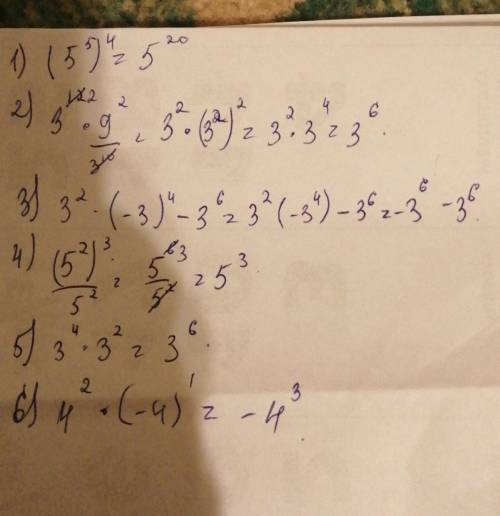 1) (5⁵)⁴ = 5²⁰
2) 3¹²² · 9² / 3¹⁰ = 3² · (3²)² = 3² · 3⁴ = 3⁶.
3) 3² · (-3)⁴ - 3⁶ = 3² (-3⁴) - 3⁶ = -3⁶ - 3⁶.
4) (5²)³ / 5² = 5⁶³ / 5² = 5³.
5) 3⁴ · 3² = 3⁶.
6) 4² · (-4)¹ = -4³.